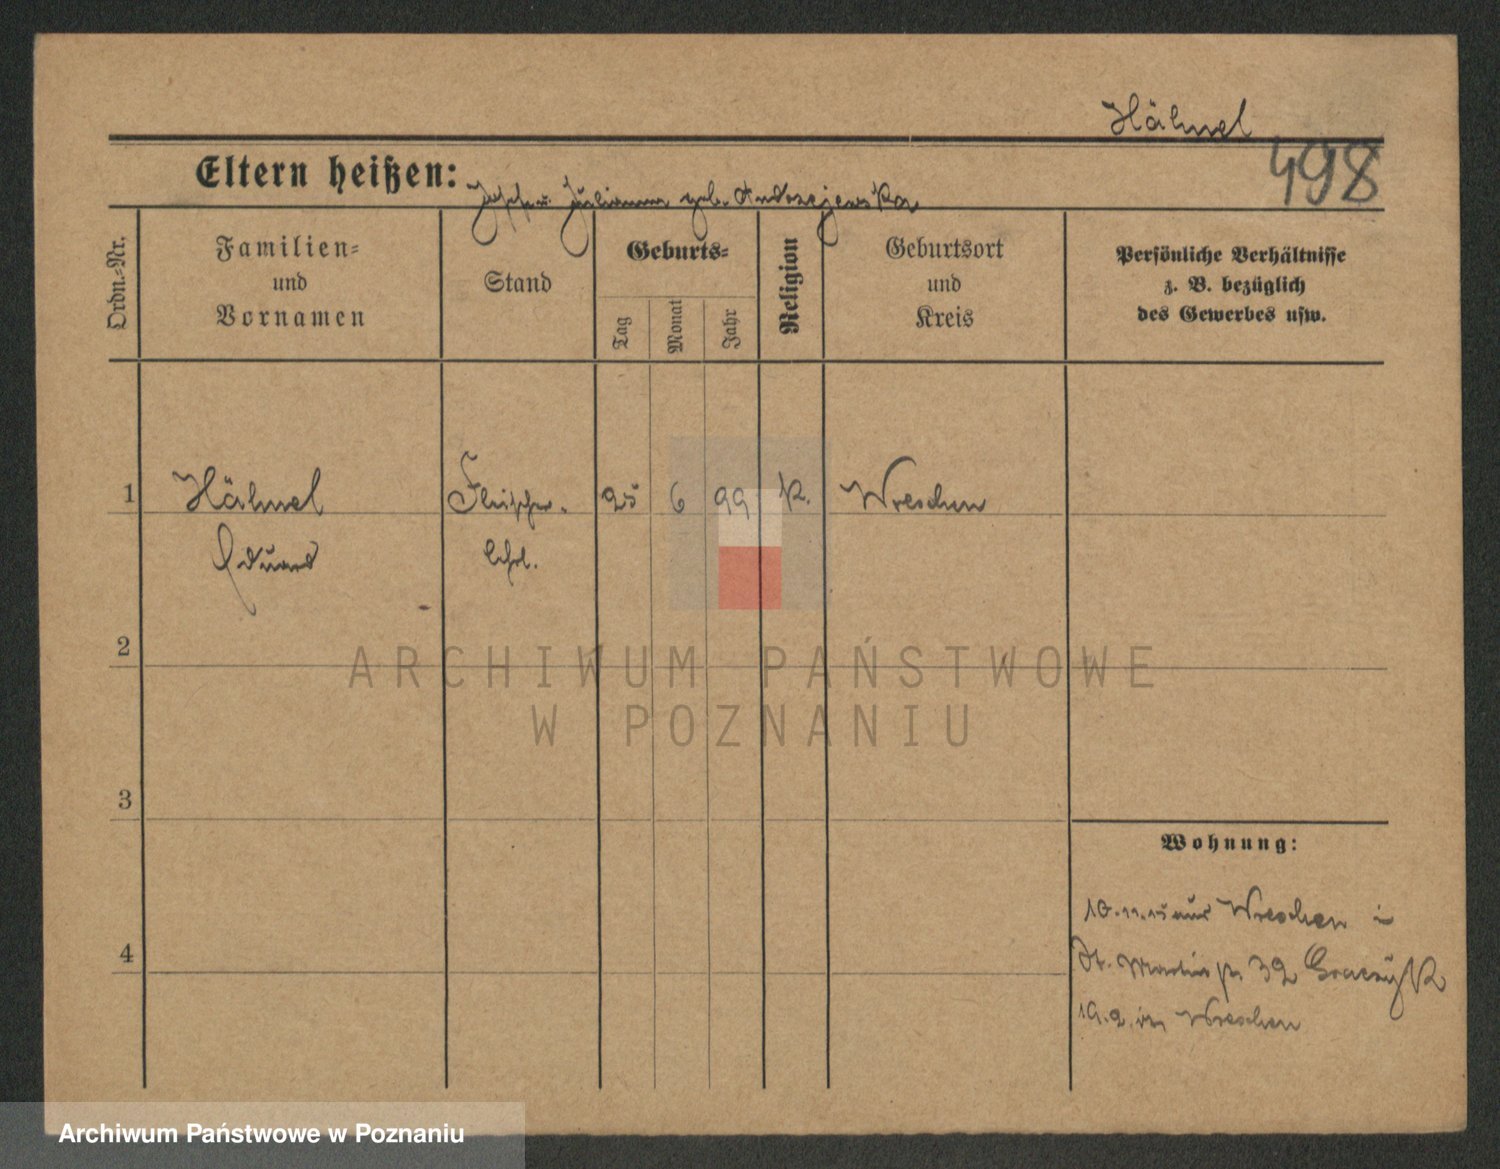 Hähnel
498
Eltern heißen: Joseph u. Julianna geb. Andrzejewska
Ordn.-Nr.
Familien-
und
Vornamen
Stand
Geburts-
Tag
Monat
Jahr
Religion
Geburtsort
und
Kreis
Persönliche Verhältnisse
z. B. bezüglich
des Gewerbes usw.
1 Hähnel Fleischer. 25 6 99 K. Wreschen
Eduard lehrl.
2
3
4
Wohnung:
10.11.15 aus Wreschen
St. Martin 32 Graczyk
19.2. in Wreschen
ARCHIWUM PAŃSTWOWE
W POZNANIU
Archiwum Państwowe w Poznaniu